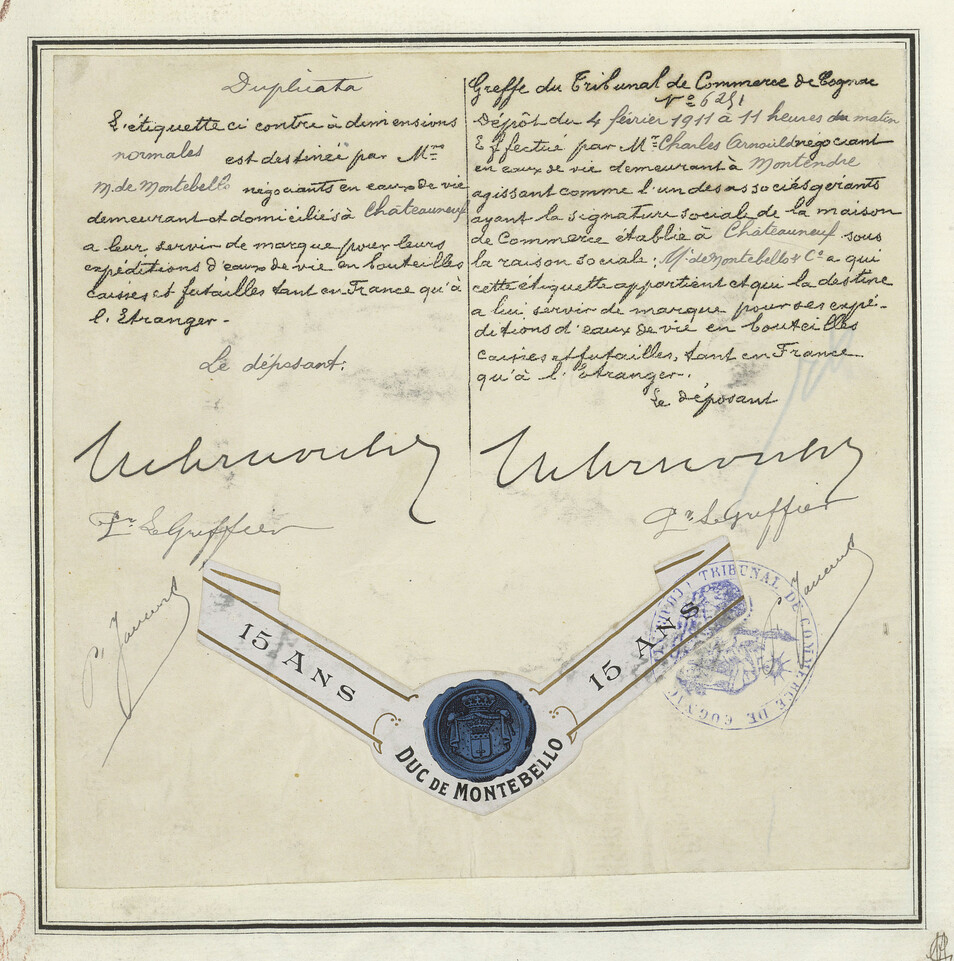 Duplicata
L'étiquette ci contre à dimensions
normales est destinée par Mrs
M. de Montebello négociants en eaux de vie
demeurant et domiciliés à Châteauneuf
a leur servir de marque pour leurs
expéditions d'eaux de vie en bouteilles
caisses et futailles tant en France qu'à
l'Etranger -
Le déposant.
Pr Le Greffier
Greffe du Tribunal de Commerce de Cognac
No 6251
Dépôt du 4 février 1911 à 11 heures du matin
Effectué par Mr Charles Arnould négociant
en eaux de vie demeurant à Montendre
agissant comme l'un des associés gérants
ayant la signature sociale de la maison
de Commerce établie à Châteauneuf sous
la raison sociale: M. de Montebello & Co a qui
cette étiquette appartient et qui la destine
a lui servir de marque pour ses expé-
ditions d'eaux de vie en bouteilles
caisses et futailles, tant en France
qu'à l'Etranger.
Le déposant
Pr Le Greffier
15 ANS
15 ANS
DUC DE MONTEBELLO
TRIBUNAL DE COMMERCE DE COGNAC